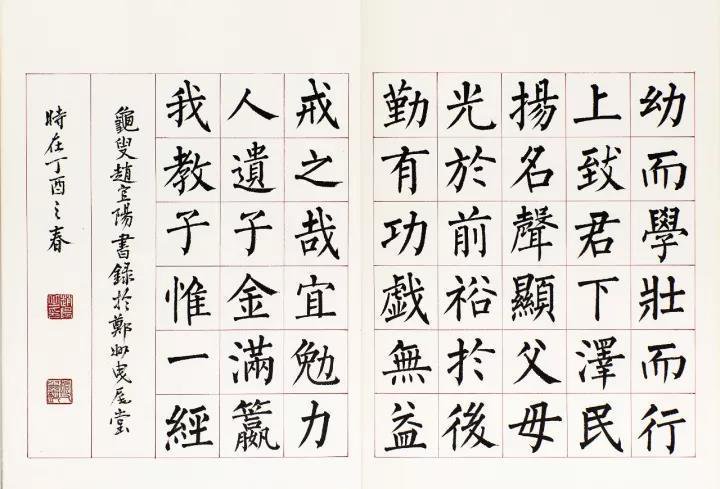 幼而學壯而行
上致君下澤民
揚名聲顯父母
光於前裕扵後
勤有功戯無益
戒之哉宜勉力
人遺子金滿籯
我教子惟一經
龜叟趙宣陽書錄扵鄭州曳尾堂
時在丁酉之春